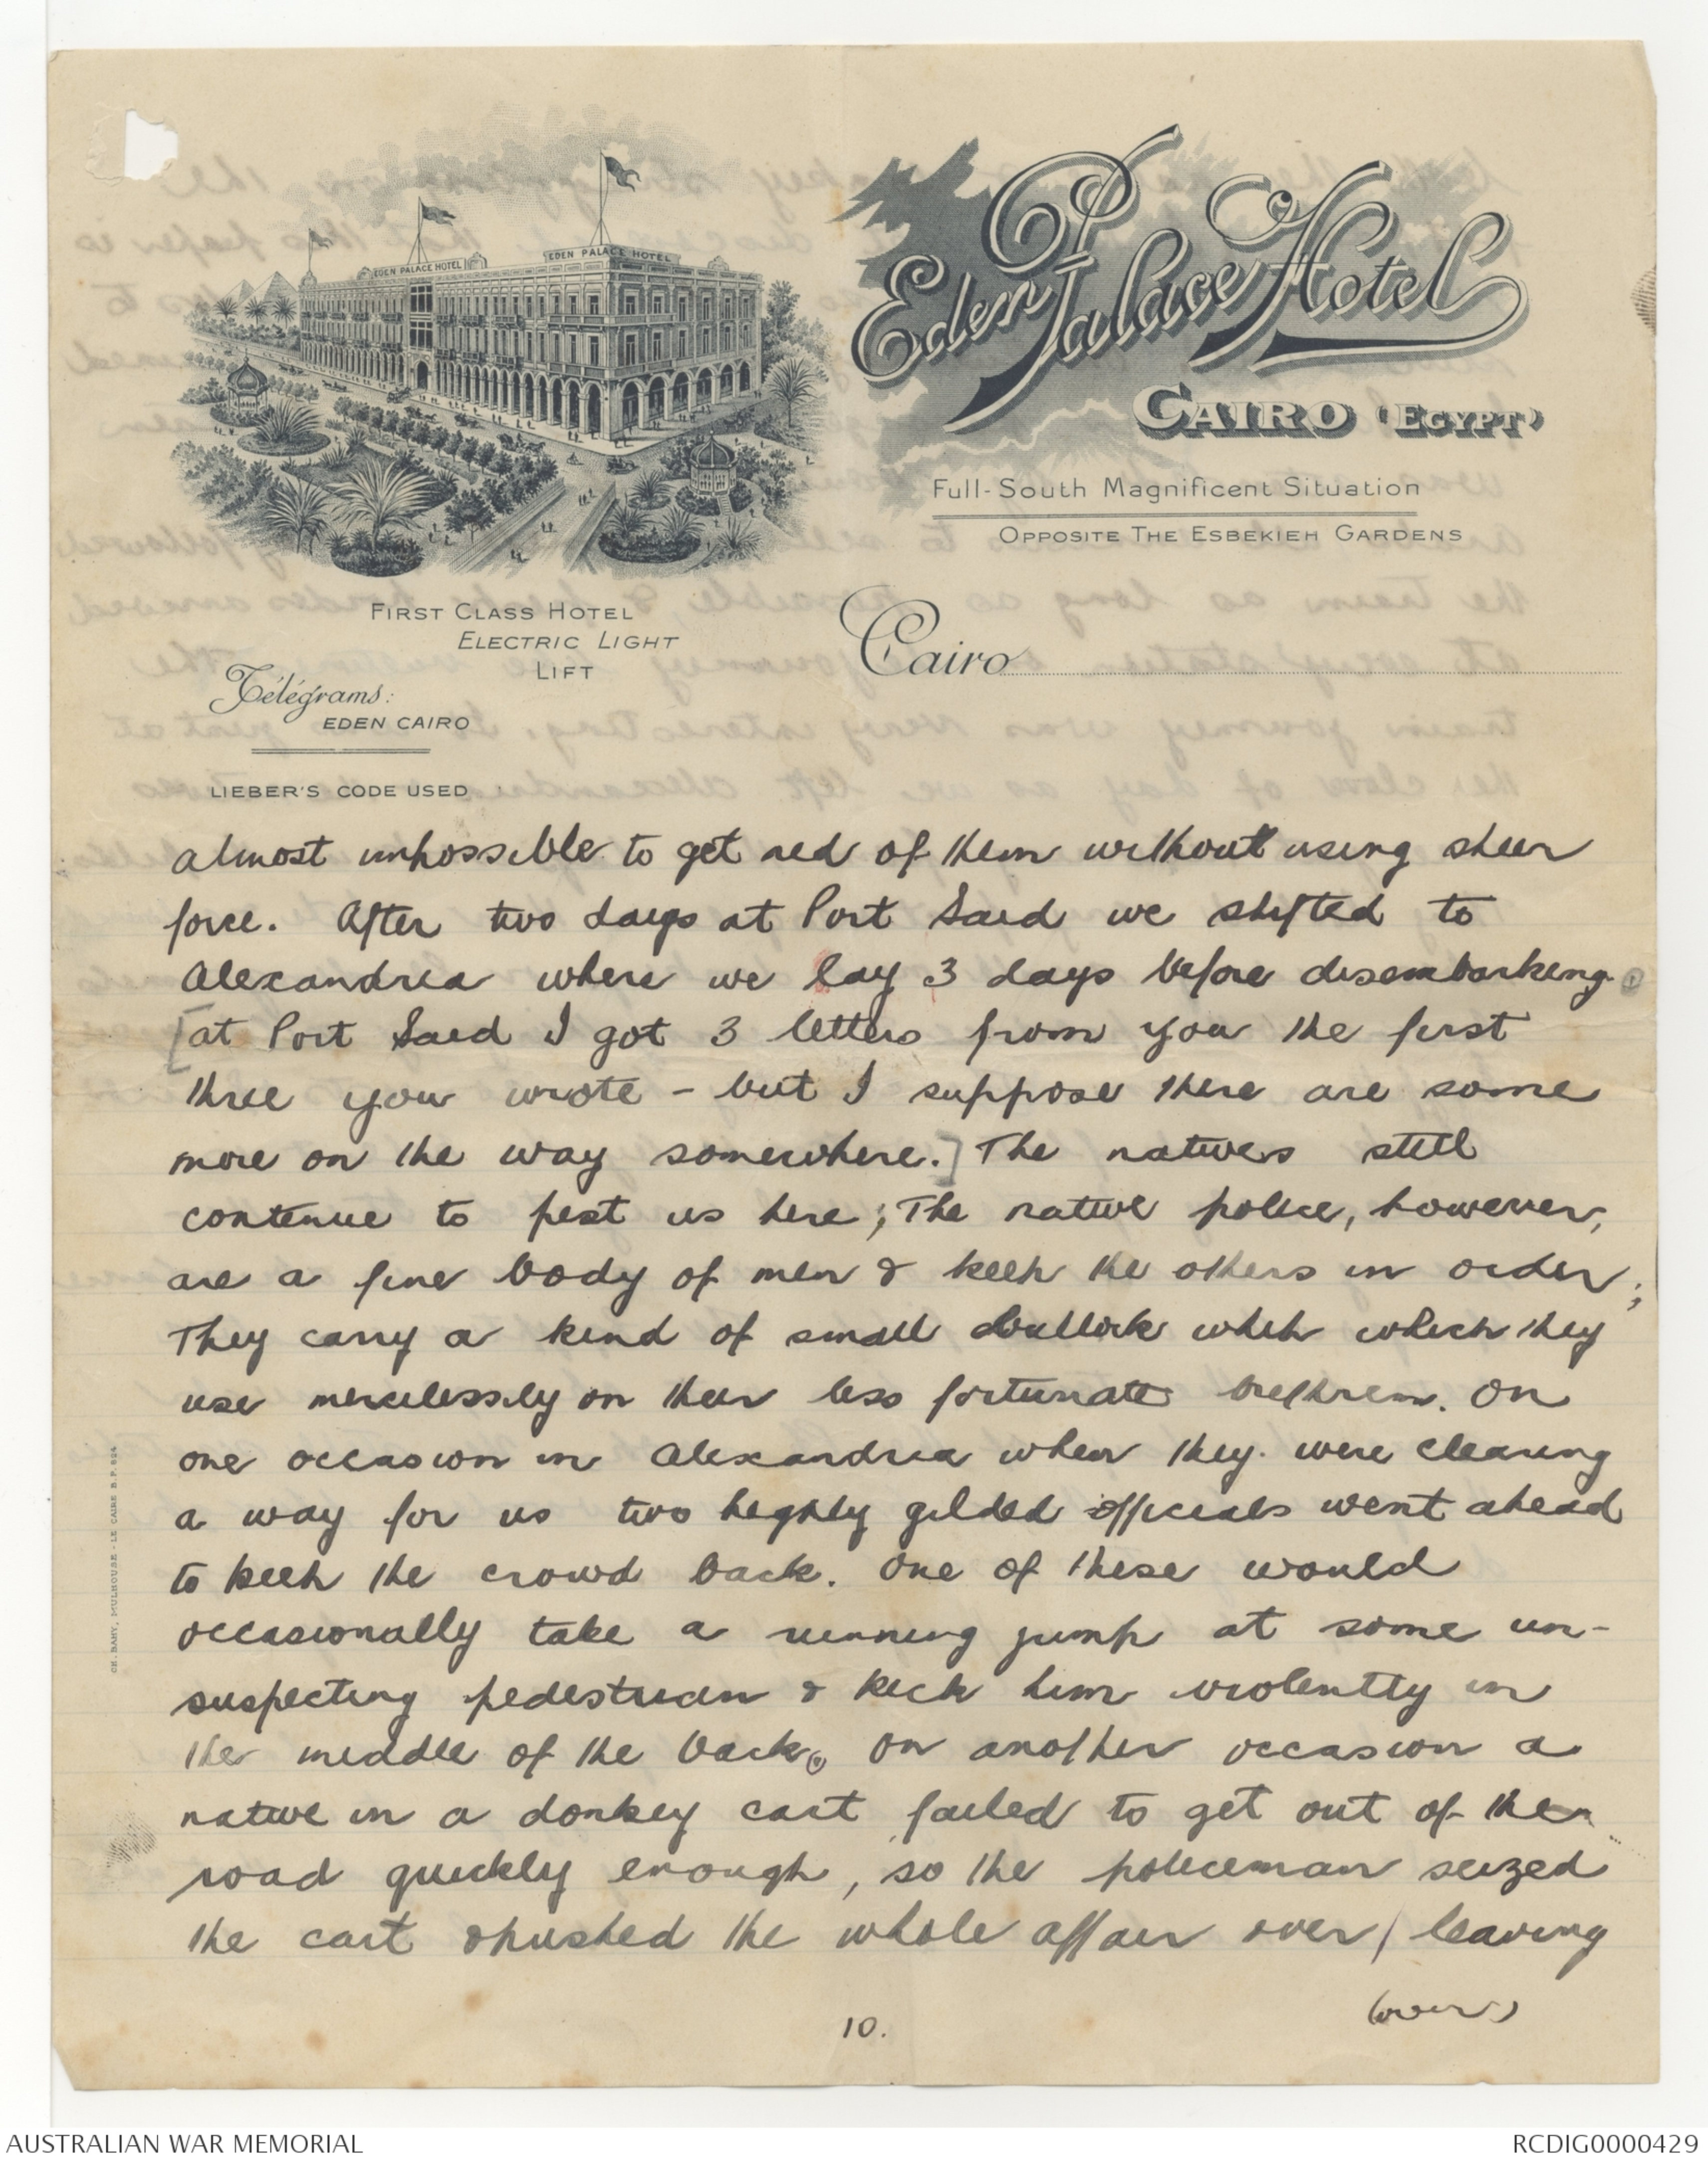 EDEN PALACE HOTEL
EDEN PALACE HOTEL
Eden Palace Hotel
CAIRO (EGYPT)
Full-South Magnificent Situation
OPPOSITE THE ESBEKIEH GARDENS
FIRST CLASS HOTEL
ELECTRIC LIGHT
LIFT
Télégrams:
EDEN CAIRO
LIEBER'S CODE USED
Cairo
almost impossible to get rid of them without using sheer
force. After two days at Port Said we shifted to
Alexandria where we lay 3 days before disembarking.
[at Port Said I got 3 letters from you the first
three you wrote - but I suppose there are some
more on the way somewhere.] The natives still
continue to pest us here; The native police, however,
are a fine body of men & keep the others in order;
They carry a kind of small which they
use mercilessly on their less fortunate brethren. On
one occasion in Alexandria when they were clearing
a way for us two highly gilded officials went ahead
to keep the crowd back. One of these would
occasionally take a running jump at some un-
suspecting pedestrian & kick him violently in
the middle of the back. On another occasion a
native in a donkey cart failed to get out of the
road quickly enough, so the policeman seized
the cart & pushed the whole affair over/ leaving
(over)
10.
CH. BAHY, MULHOUSE - LE CAIRE B.P. 624
AUSTRALIAN WAR MEMORIAL
RCDIG0000429